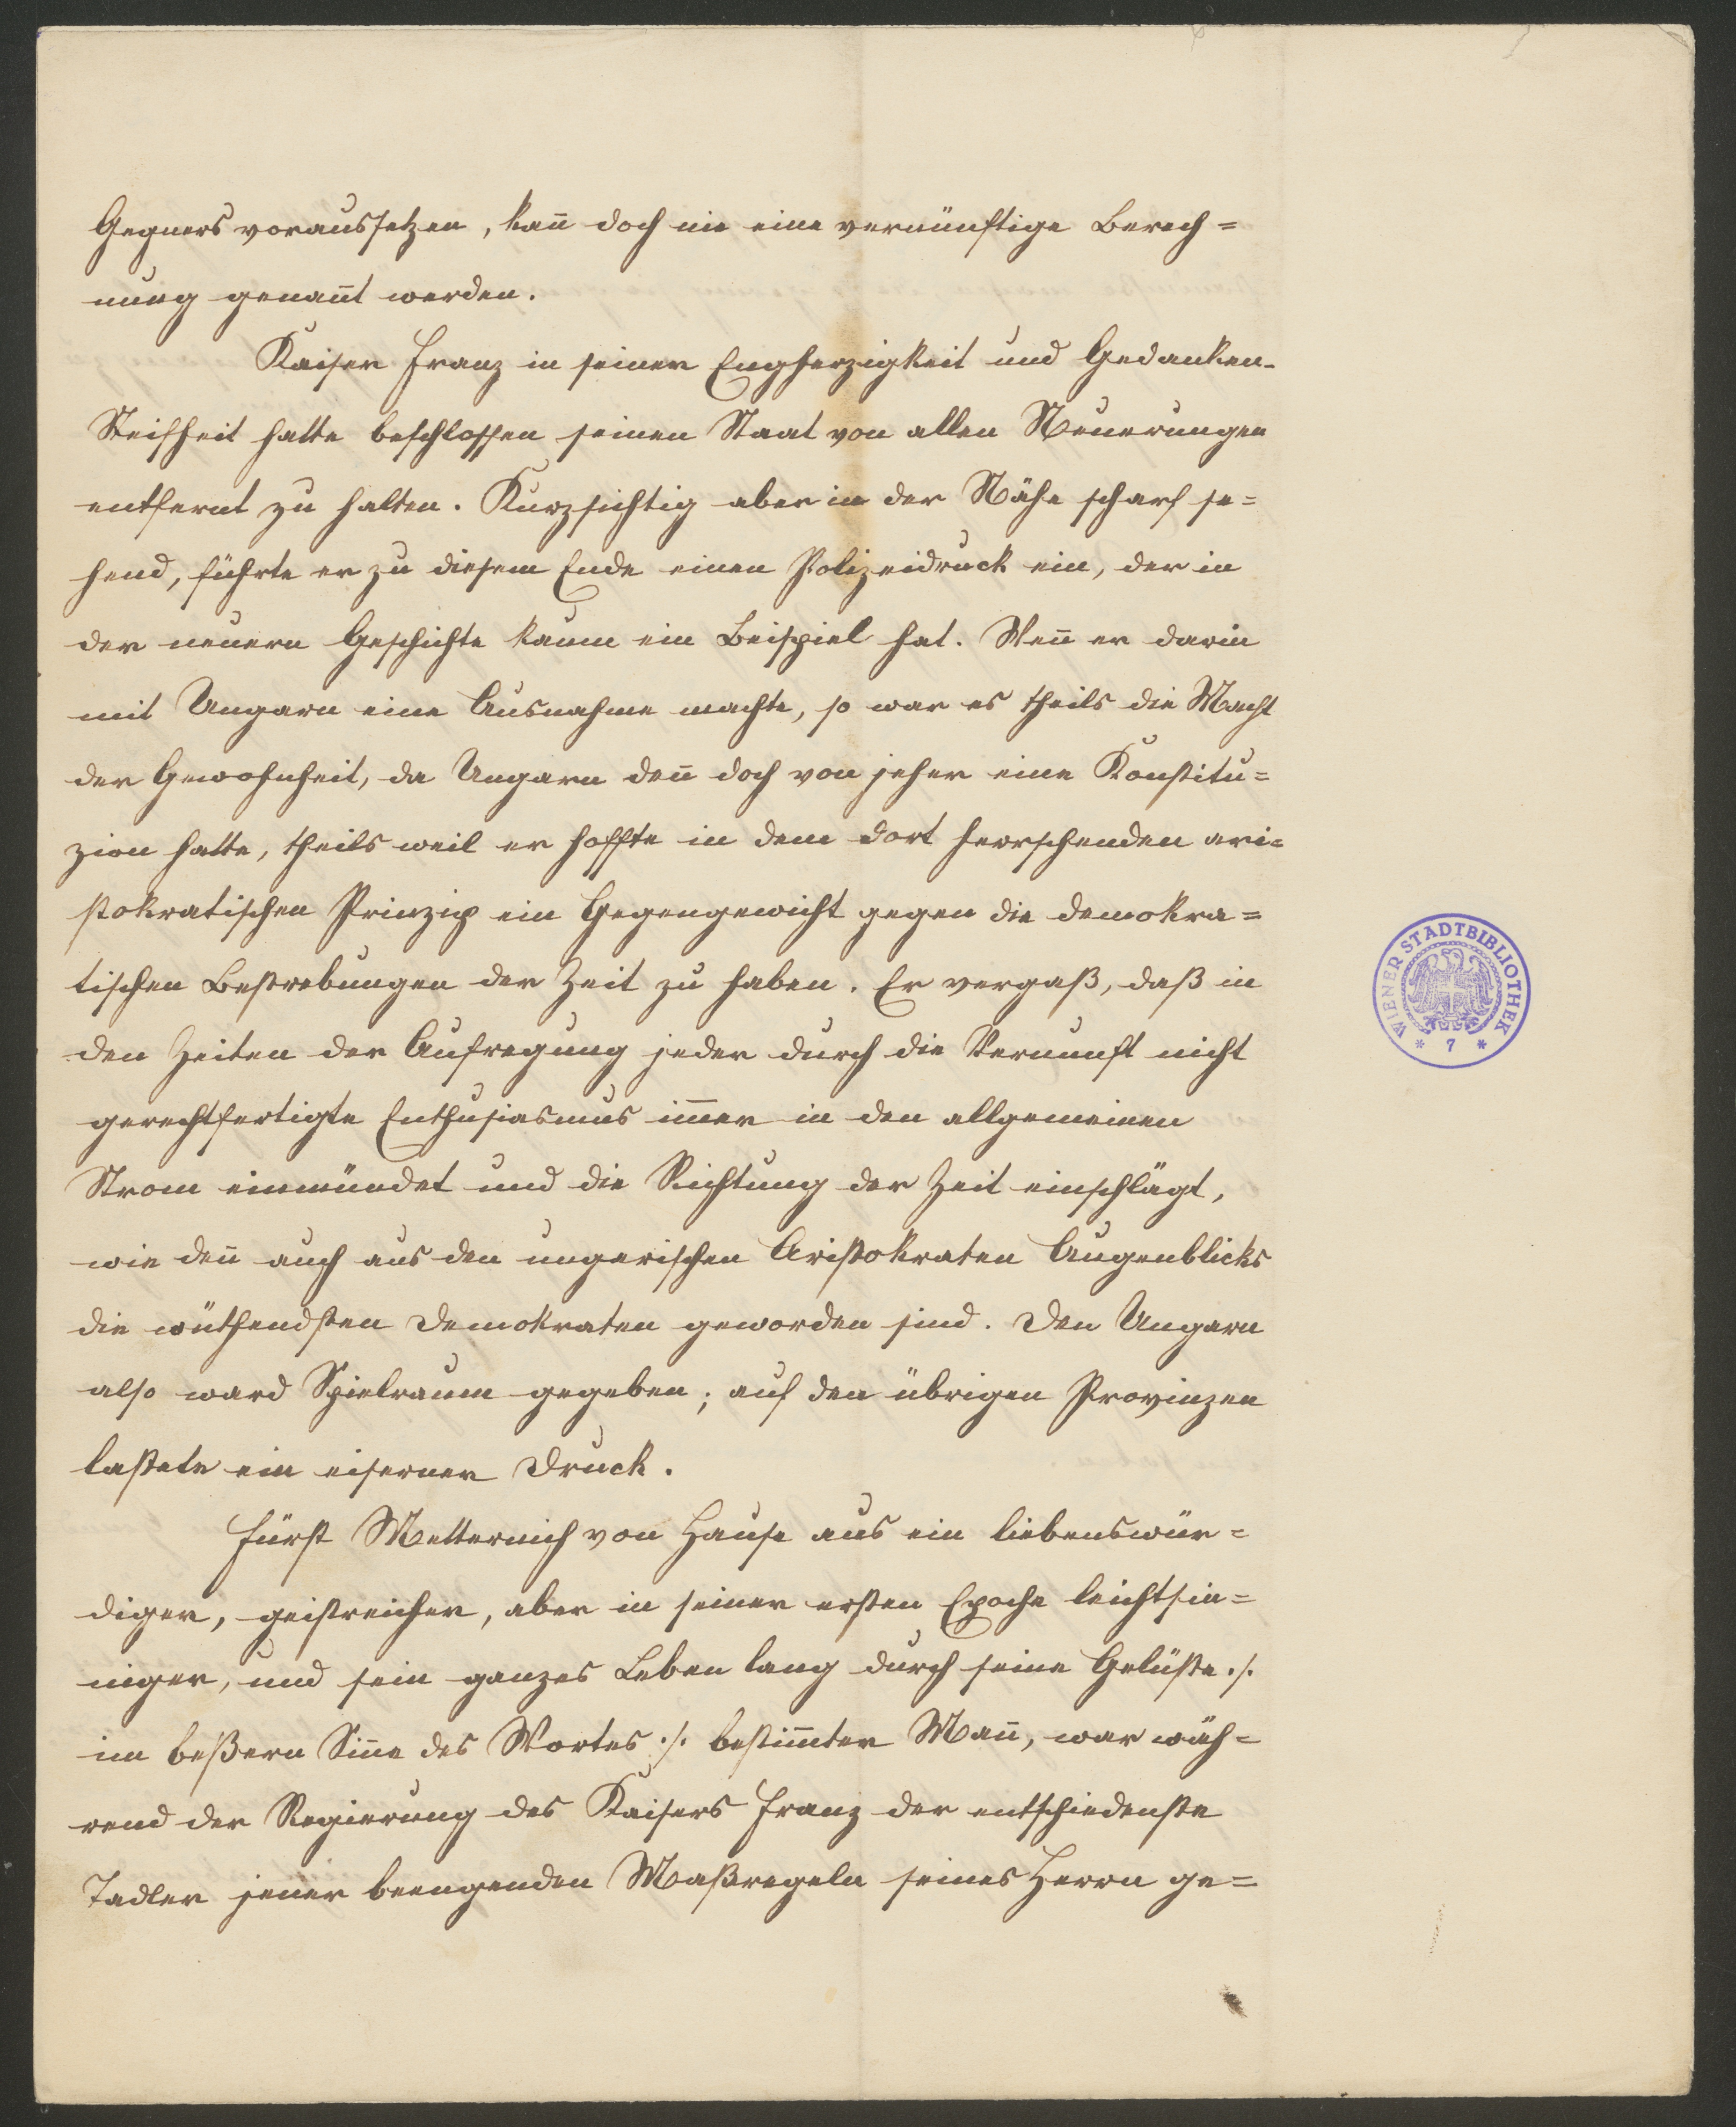 Gegners voraussetzen, kan̄ doch nie eine vernünftige Berech=
nung genan̄t werden.
Kaiser Franz in seiner Engherzigkeit und Gedanken-
Steifheit hatte beschlossen seinen Staat von allen Neuerungen
entfernt zu halten. Kurzsichtig aber in der Nähe scharf se=
hend, führte er zu diesem Ende einen Polizeidruck ein, der in
der neuern Geschichte kaum ein Beispiel hat. Wen̄ er darin
mit Ungarn eine Ausnahme machte, so war es theils die Macht
der Gewohnheit, da Ungarn den̄ doch von jeher eine Konstitu=
zion hatte, theils weil er hoffte in dem dort herrschenden ari=
stokratischen Prinzip ein Gegengewicht gegen die demokra=
tischen Bestrebungen der Zeit zu haben. Er vergaß, daß in
den Zeiten der Aufregung jeder durch die Vernunft nicht
gerechtfertigte Enthusiasmus im̄er in den allgemeinen
Strom einmündet und die Richtung der Zeit einschlägt,
wie den̄ auch aus den ungerischen Aristokraten Augenblicks
die wüthendsten Demokraten geworden sind. Den Ungarn
also ward Spielraum gegeben; auf den übrigen Provinzen
lastete ein eiserner Druck.
Fürst Metternich von Hause aus ein liebenswür=
diger, geistreicher, aber in seiner ersten Epoche leichtsin=
niger, und sein ganzes Leben lang durch seine Gelüste ./.
im beßern Sin̄e des Wortes ./. bestim̄ter Man̄, war wäh=
rend der Regierung des Kaisers Franz der entschiedenste
Tadler jener beengenden Maßregeln seines Herrn ge=
WIENER STADTBIBLIOTHEK
* 7 *